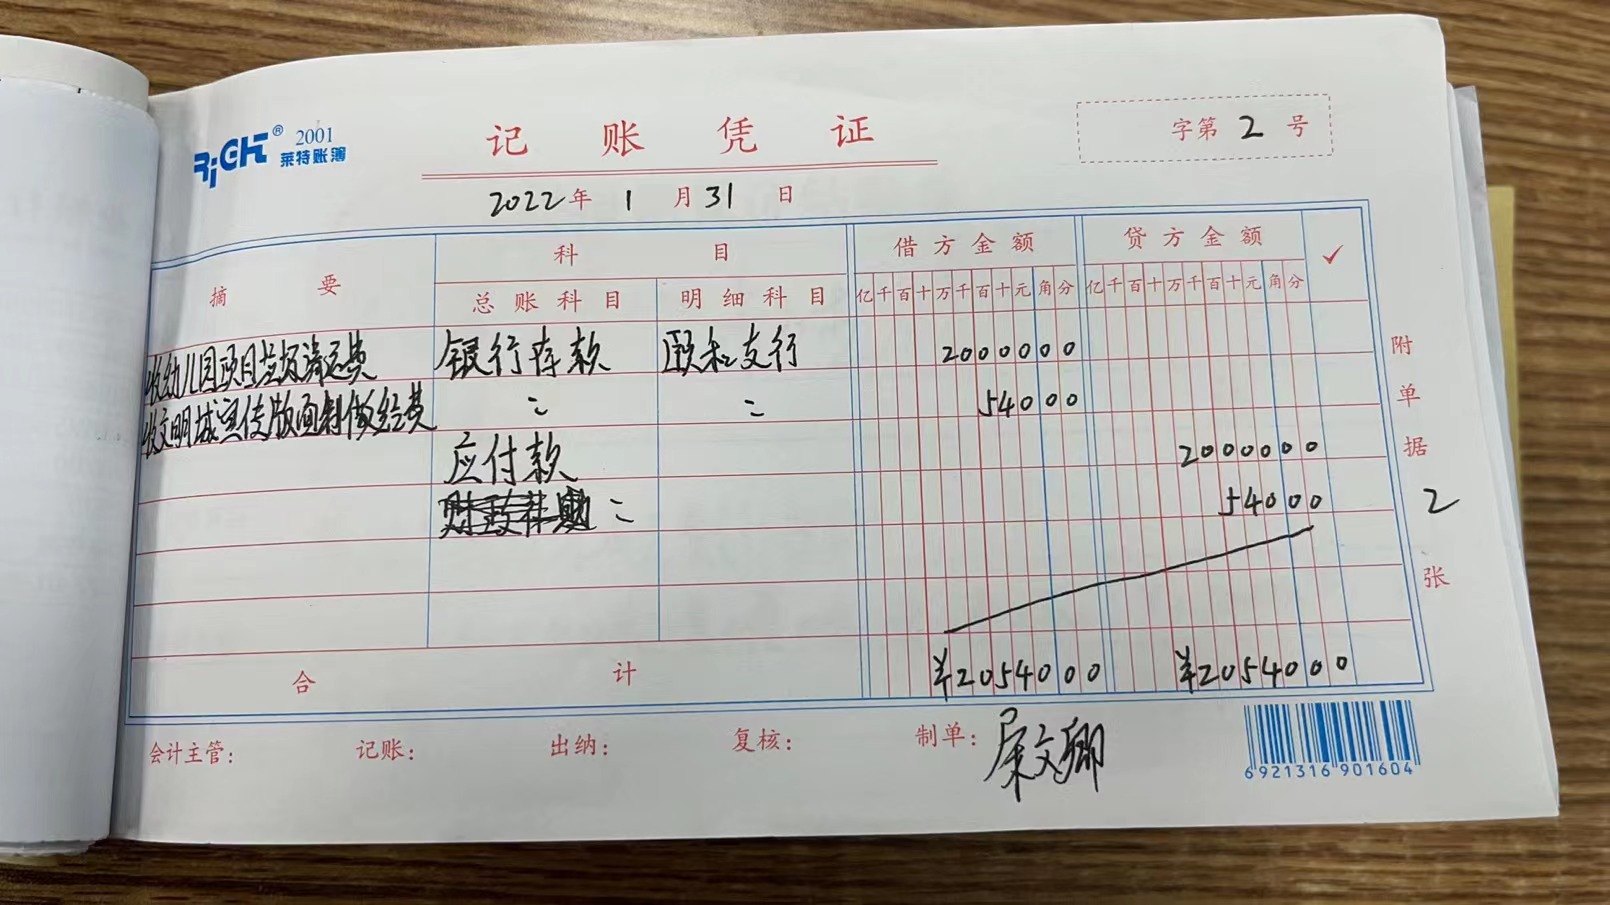 RiGHT® 2001
莱特账簿
记账凭证
字第 2 号
2022年 1 月 31 日
摘要 科目 借方金额 贷方金额 ✓
总账科目 明细科目 亿千百十万千百十元角分 亿千百十万千百十元角分
收幼儿园项目垃圾清运费 银行存款 颐和支行 2000000
收文明城宣传版面制做经费 〃 〃 54000
应付款 2000000
〃 54000
合计 ¥2054000 ¥2054000
附单据 2 张
会计主管: 记账: 出纳: 复核: 制单: 屈文卿
6 921316 901604